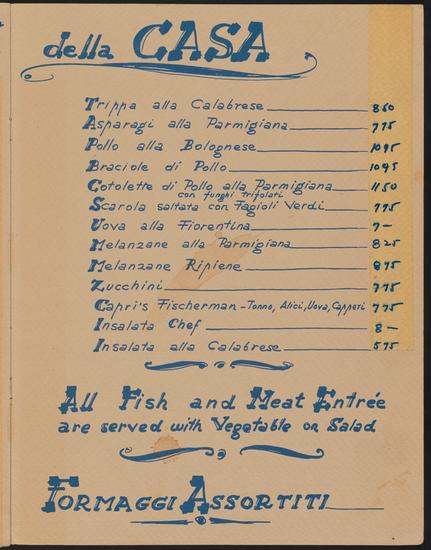 della CASA
Trippa alla Calabrese 850
Asparagi alla Parmigiana 775
Pollo alla Bolognese 1095
Braciole di Pollo 1095
Cotolette di Pollo alla Parmigiana 1150
con funghi trifolati
Scarola saltata con Fagioli Verdi 775
Uova alla Fiorentina 7-
Melanzane alla Parmigiana 825
Melanzane Ripiene 875
Zucchini 775
Capri's Fischerman - Tonno, Alici, Uova, Capperi 775
Insalata Chef 8-
Insalata alla Calabrese 575
All Fish and Meat Entrée
are served with Vegetable or Salad
FORMAGGI ASSORTITI